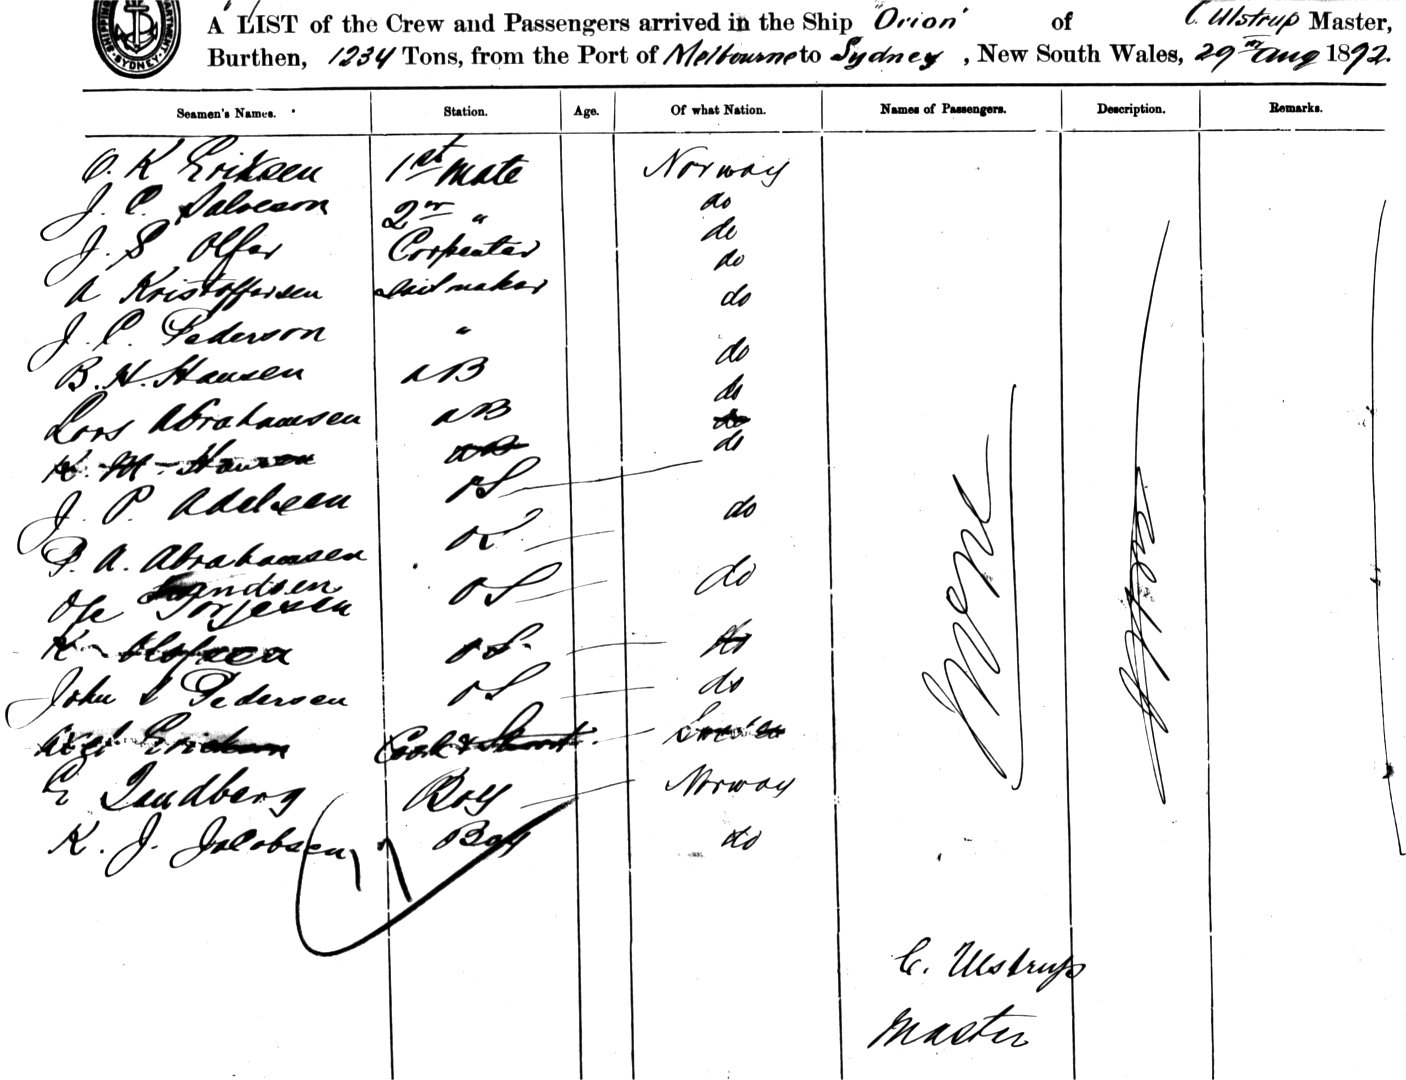 A LIST of the Crew and Passengers arrived in the Ship "Orion" of C. Ulstrup Master,
Burthen, 1234 Tons, from the Port of Melbourne to Sydney, New South Wales, 29th Aug 1892.
Seamen's Names. Station. Age. Of what Nation. Names of Passengers. Description. Remarks.
O. K Eriksen 1st Mate Norway
J. C. Salveson 2nd " do
J. S Olsen Carpenter do
A Kristoffersen Sailmaker do
J. C. Pederson " do
B. H. Hansen AB do
Lars Abrahamsen AB do
K. M. Hansen AB do
J. P. Adelsen OS do
P. A. Abrahamsen OS do
Ole Torjesen OS do
K Olofsen OS do
John S Pedersen OS do
Axel Erickson Cook & Stewart. Sweden
E Landberg Boy Norway
K. J. Jacobsen Boy do
None
17
C. Ulstrup
Master
SYDNEY